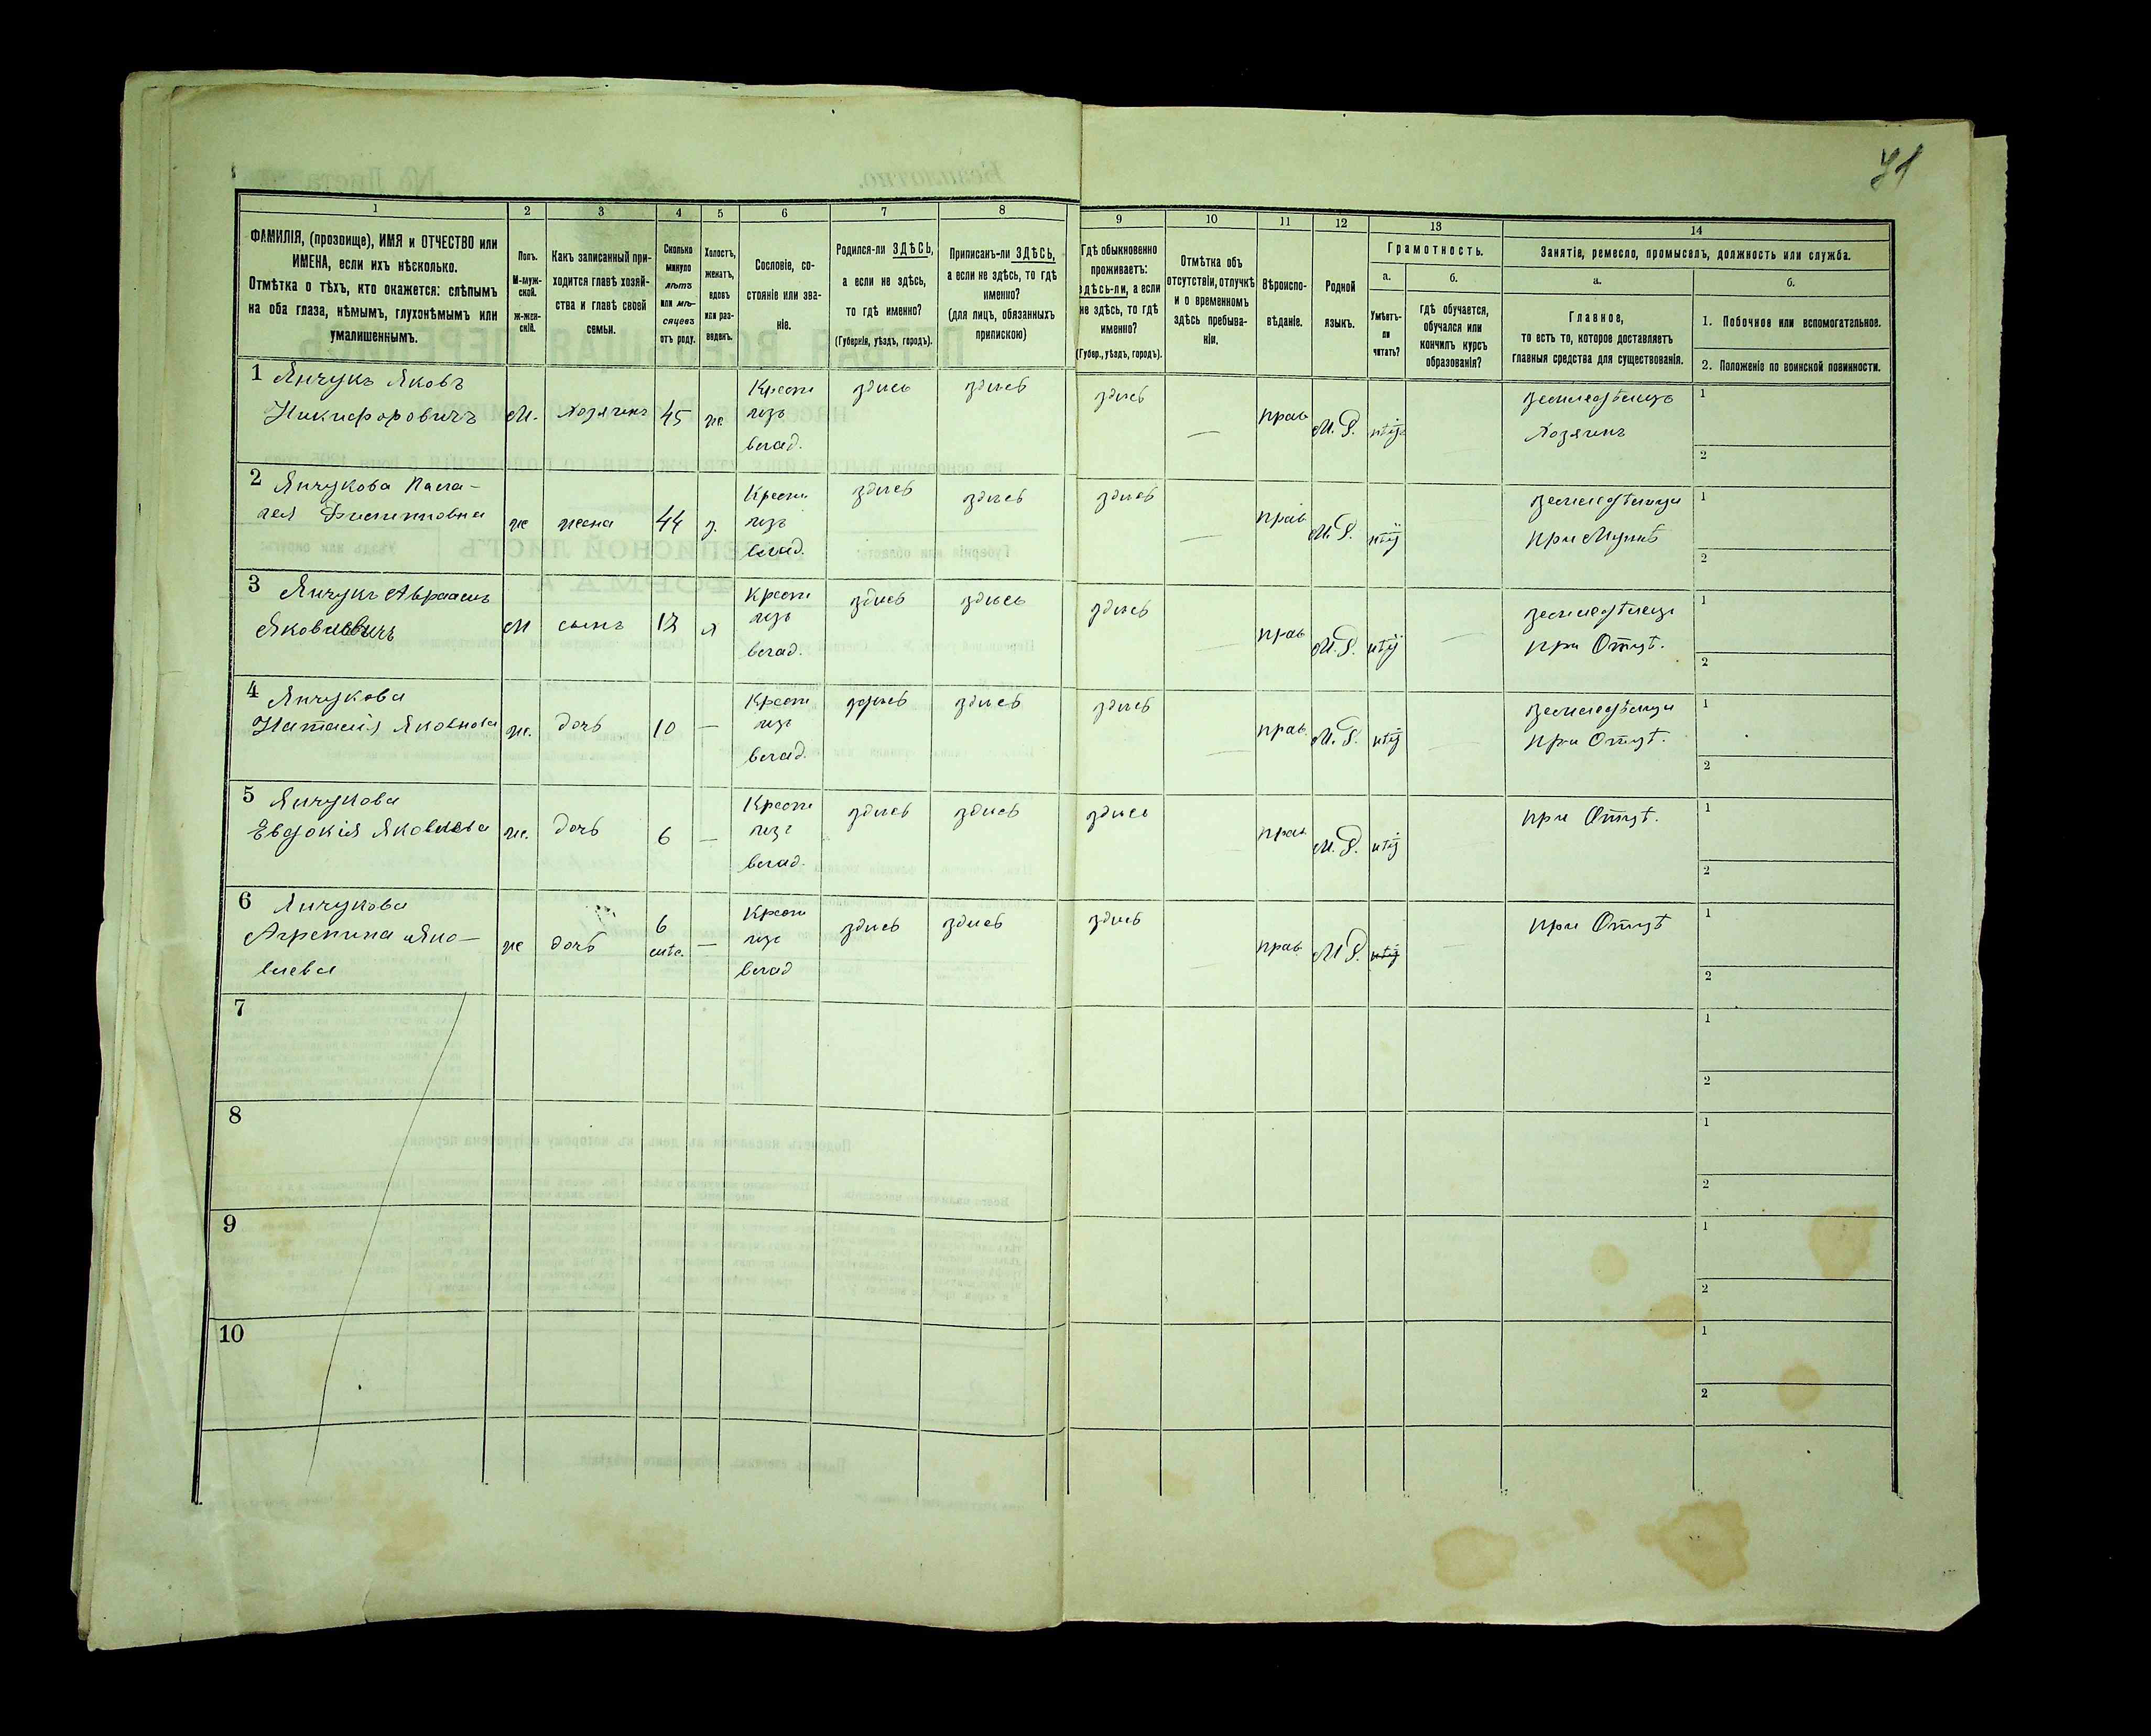 71
1 2 3 4 5 6 7 8 9 10 11 12 13 14
ФАМИЛІЯ, (прозвище), ИМЯ и ОТЧЕСТВО или
ИМЕНА, если ихъ нѣсколько.
Отмѣтка о тѣхъ, кто окажется: слѣпымъ
на оба глаза, нѣмымъ, глухонѣмымъ или
умалишеннымъ.
Полъ.
М-муж-
ской.
ж-жен-
скій.
Какъ записанный при-
ходится главѣ хозяй-
ства и главѣ своей
семьи.
Сколько
минуло
лѣтъ
или мѣ-
сяцевъ
отъ роду.
Холостъ,
женатъ,
вдовъ
или раз-
веденъ.
Сословіе, со-
стояніе или зва-
ніе.
Родился-ли ЗДѢСЬ,
а если не здѣсь,
то гдѣ именно?
(Губернія, уѣздъ, городъ).
Приписанъ-ли ЗДѢСЬ,
а если не здѣсь, то гдѣ
именно?
(для лицъ, обязанныхъ
припискою)
Гдѣ обыкновенно
проживаетъ:
здѣсь-ли, а если
не здѣсь, то гдѣ
именно?
(Губер., уѣздъ, городъ).
Отмѣтка объ
отсутствіи, отлучкѣ
и о временномъ
здѣсь пребыва-
ніи.
Вѣроиспо-
вѣданіе.
Родной
языкъ.
Грамотность.
а.
Умѣетъ-
ли
читать?
б.
гдѣ обучается,
обучался или
кончилъ курсъ
образованія?
Занятіе, ремесло, промыселъ, должность или служба.
а.
Главное,
то есть то, которое доставляетъ
главныя средства для существованія.
б.
1. Побочное или вспомогательное.
2. Положеніе по воинской повинности.
1 Янчукъ Яковъ
Никифоровичъ М. хозяинъ 45 ж.
Крест изъ влад. здись здись здись — прав М.Р. нѣтъ
земледѣлецъ
хозяинъ
1
2
2 Янчукова Пала-
гея Филиповна ж жена 44 з.
Крест изъ влад. здись здись здись — прав М.Р. нѣтъ
земледѣлица
при Мужѣ
1
2
3 Янчукъ Авраамъ
Яковлевичъ М сынъ 13 х
Крест изъ влад. здись здись здись — прав М.Р. нѣтъ —
земледѣлецъ
при Отцѣ.
1
2
4 Янчукова
Наталія Яковлева ж. дочь 10 —
Крест изъ влад. здись здись здись — прав. М.Р. нѣтъ —
земледѣлица
при Отцѣ.
1
2
5 Янчукова
Евдокія Яковлева ж. дочь 6 —
Крест изъ влад. здись здись здись — прав М.Р. нѣтъ
при Отцѣ.
1
2
6 Янчукова
Агрепина Яко-
влева ж дочь 6 мѣс. —
Крест изъ влад здись здись здись — прав. М Р. нѣтъ —
при Отцѣ
1
2
7
1
2
8
1
2
9
1
2
10
1
2